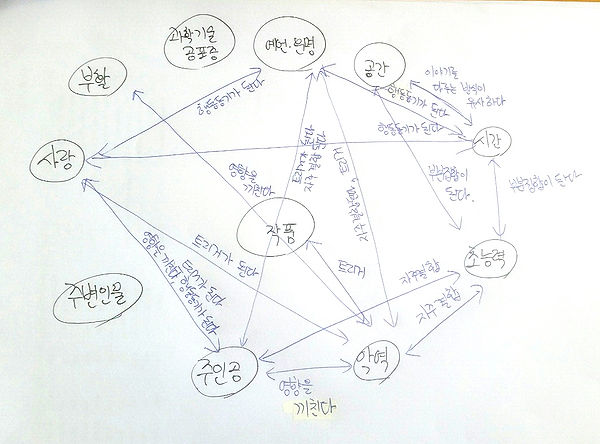 과학기술
공포증
예언·운명
공간
부활
이야기를
다루는 방식이
유사하다
행동동기가 된다
행동동기가 된다
행동동기가 된다
시간
사랑
영향을
끼친다
트리거가 된다
자주 결합 된다
부분집합이
된다.
부분집합이 된다
작품
트리거
초능력
영향을 끼친다
트리거가 된다
행동동기가 된다
트리거가 된다
자주결합
자주 결합
주변인물
주인공
악역
영향을
끼친다